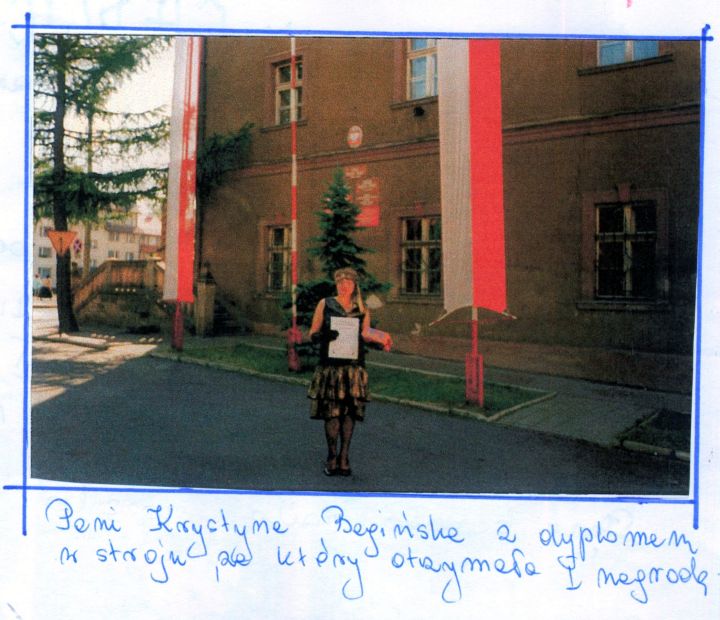 Pani Krystyna Begińska z dyplomem
w stroju, za który otrzymała I nagrodę.